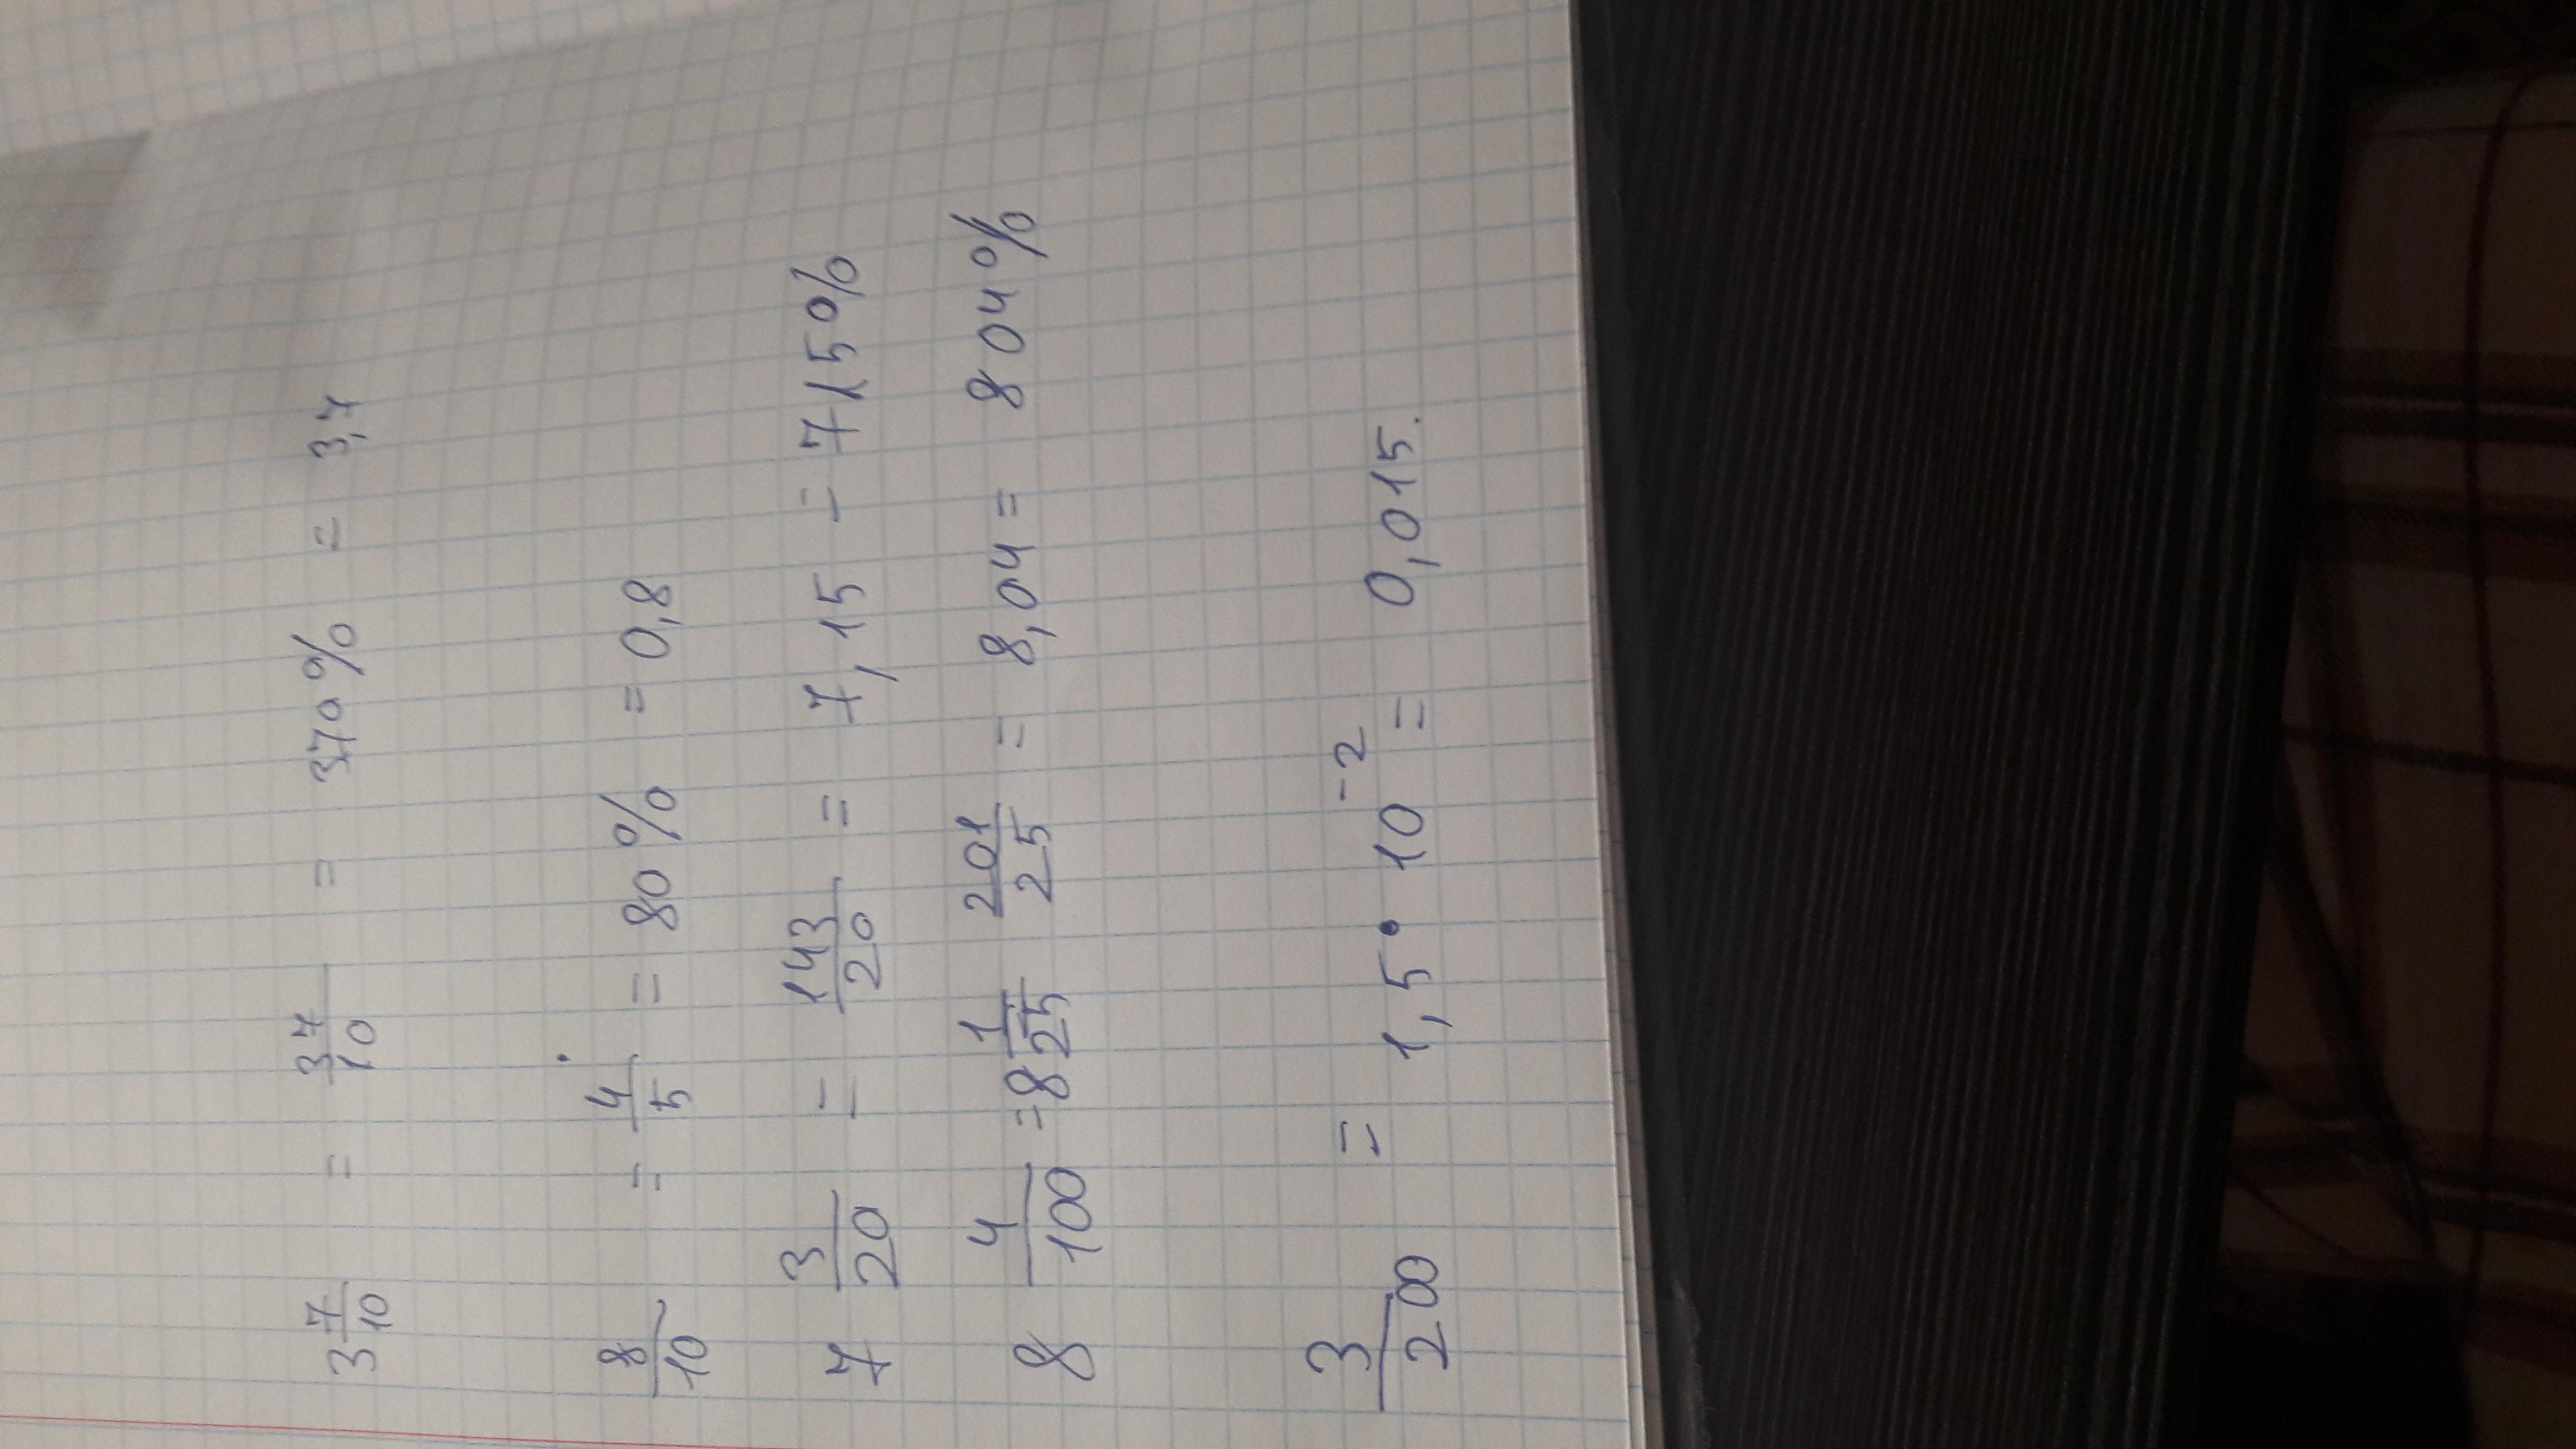 3 7/10 = 37/10 = 370% = 3,7
8/10 = 4/5 = 80% = 0,8
7 3/20 = 143/20 = 7,15 = 715%
8 4/100 = 8 1/25 201/25 = 8,04 = 804%
3/200 = 1,5 • 10⁻² = 0,015.